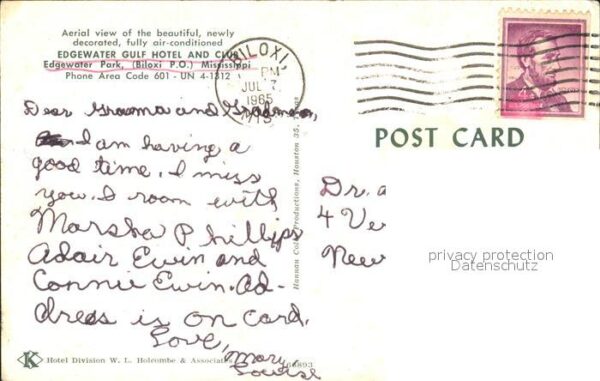 Aerial view of the beautiful, newly
decorated, fully air-conditioned
EDGEWATER GULF HOTEL AND CLUB
Edgewater Park, (Biloxi P.O.) Mississippi
Phone Area Code 601 - UN 4-1312
BILOXI,
PM
JUL 7
1965
MIS
POST CARD
Dear Grandma and
I am having a
good time. I miss
you. I room with
Marsha Phillips
Adair Ewin and
Connie Ewin. Ad-
dress is on card.
Love,
Mary
Louise
Hannau Color Productions, Houston 35, Texas
Dr. a
4 Ve
New
privacy protection
Datenschutz
K Hotel Division W. L. Holcombe & Associates
66893